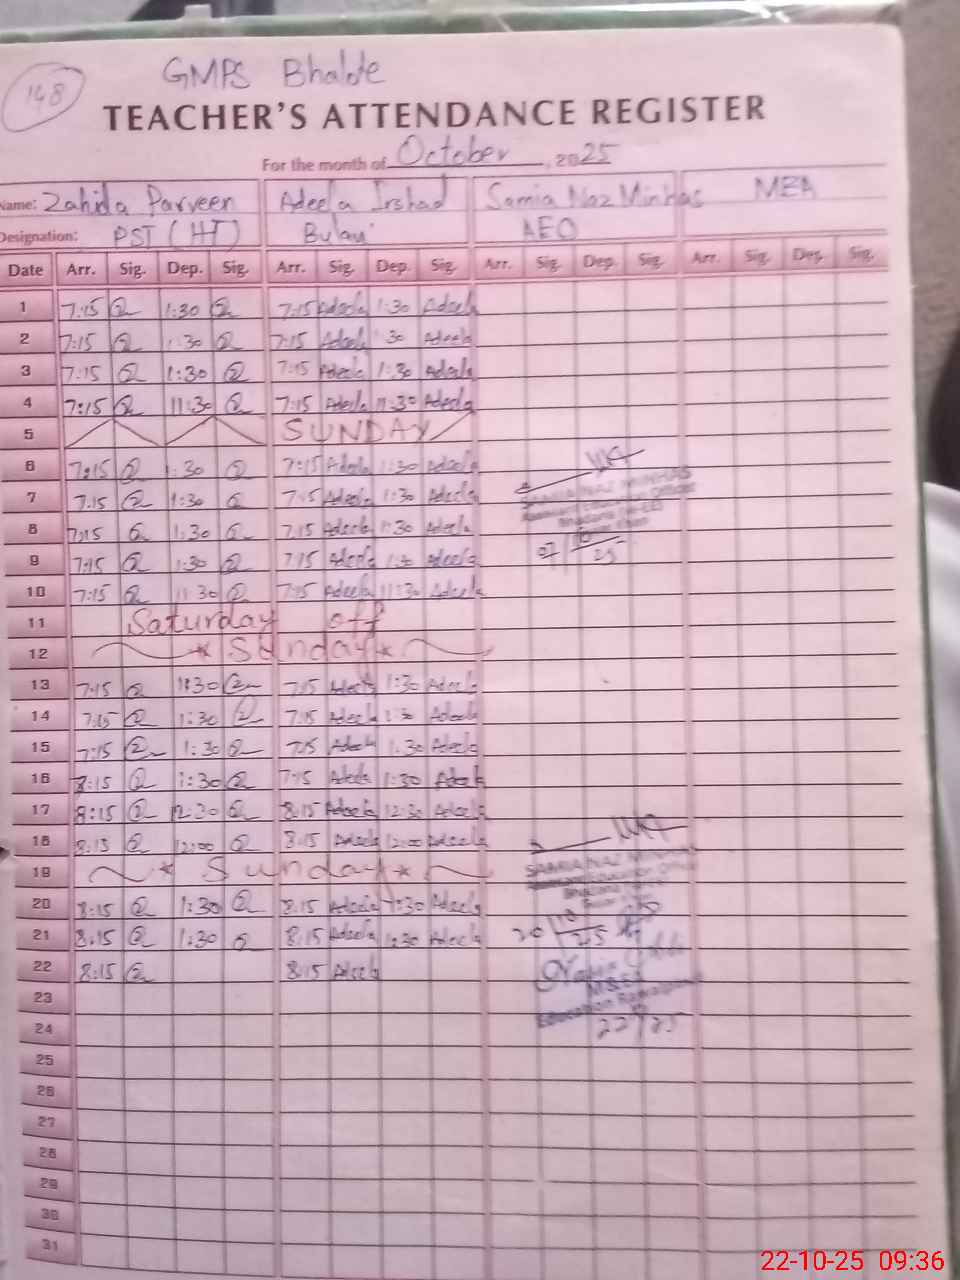 148
GMPS Bhalote
TEACHER'S ATTENDANCE REGISTER
For the month of October, 2025
Name: Zahida Parveen Adeela Irshad Samia Naz Minhas MEA
Designation: PST (HT) AEO
Date Arr. Sig. Dep. Sig. Arr. Sig. Dep. Sig. Arr. Sig. Dep. Sig. Arr. Sig. Dep. Sig.
1 7:15 1:30 7:15 Adeela 1:30 Adeela
2 7:15 1:30 7:15 Adeela 30 Adeela
3 7:15 1:30 7:15 Adeela 1:30 Adeela
4 7:15 11:30 7:15 Adeela 11:30 Adeela
5 SUNDAY
6 7:15 1:30 7:15 Adeela 1:30 Adeela
7 7:15 1:30 7:15 Adeela 1:30 Adeela
SAMIA NAZ MINHAS
8 7:15 1:30 7:15 Adeela 1:30 Adeela
9 7:15 1:30 7:15 Adeela 1:30 Adeela
07/10/25
10 7:15 11:30 7:15 Adeela 11:30 Adeela
11 Saturday off
12 Sunday
13 7:15 1:30 7:15 Adeela 1:30 Adeela
14 7:15 1:30 7:15 Adeela 1:30 Adeela
15 7:15 1:30 7:15 Adeela 1:30 Adeela
16 8:15 1:30 7:15 Adeela 1:30 Adeela
17 8:15 12:30 8:15 Adeela 12:30 Adeela
18 8:15 12:00 8:15 Adeela 12:00 Adeela
19 Sunday
SAMIA NAZ MINHAS
20 8:15 1:30 8:15 Adeela 1:30 Adeela
21 8:15 1:30 8:15 Adeela 1:30 Adeela
20/10/25
22 8:15 8:15 Adeela
23
24
25
26
27
28
29
30
31
22-10-25 09:36